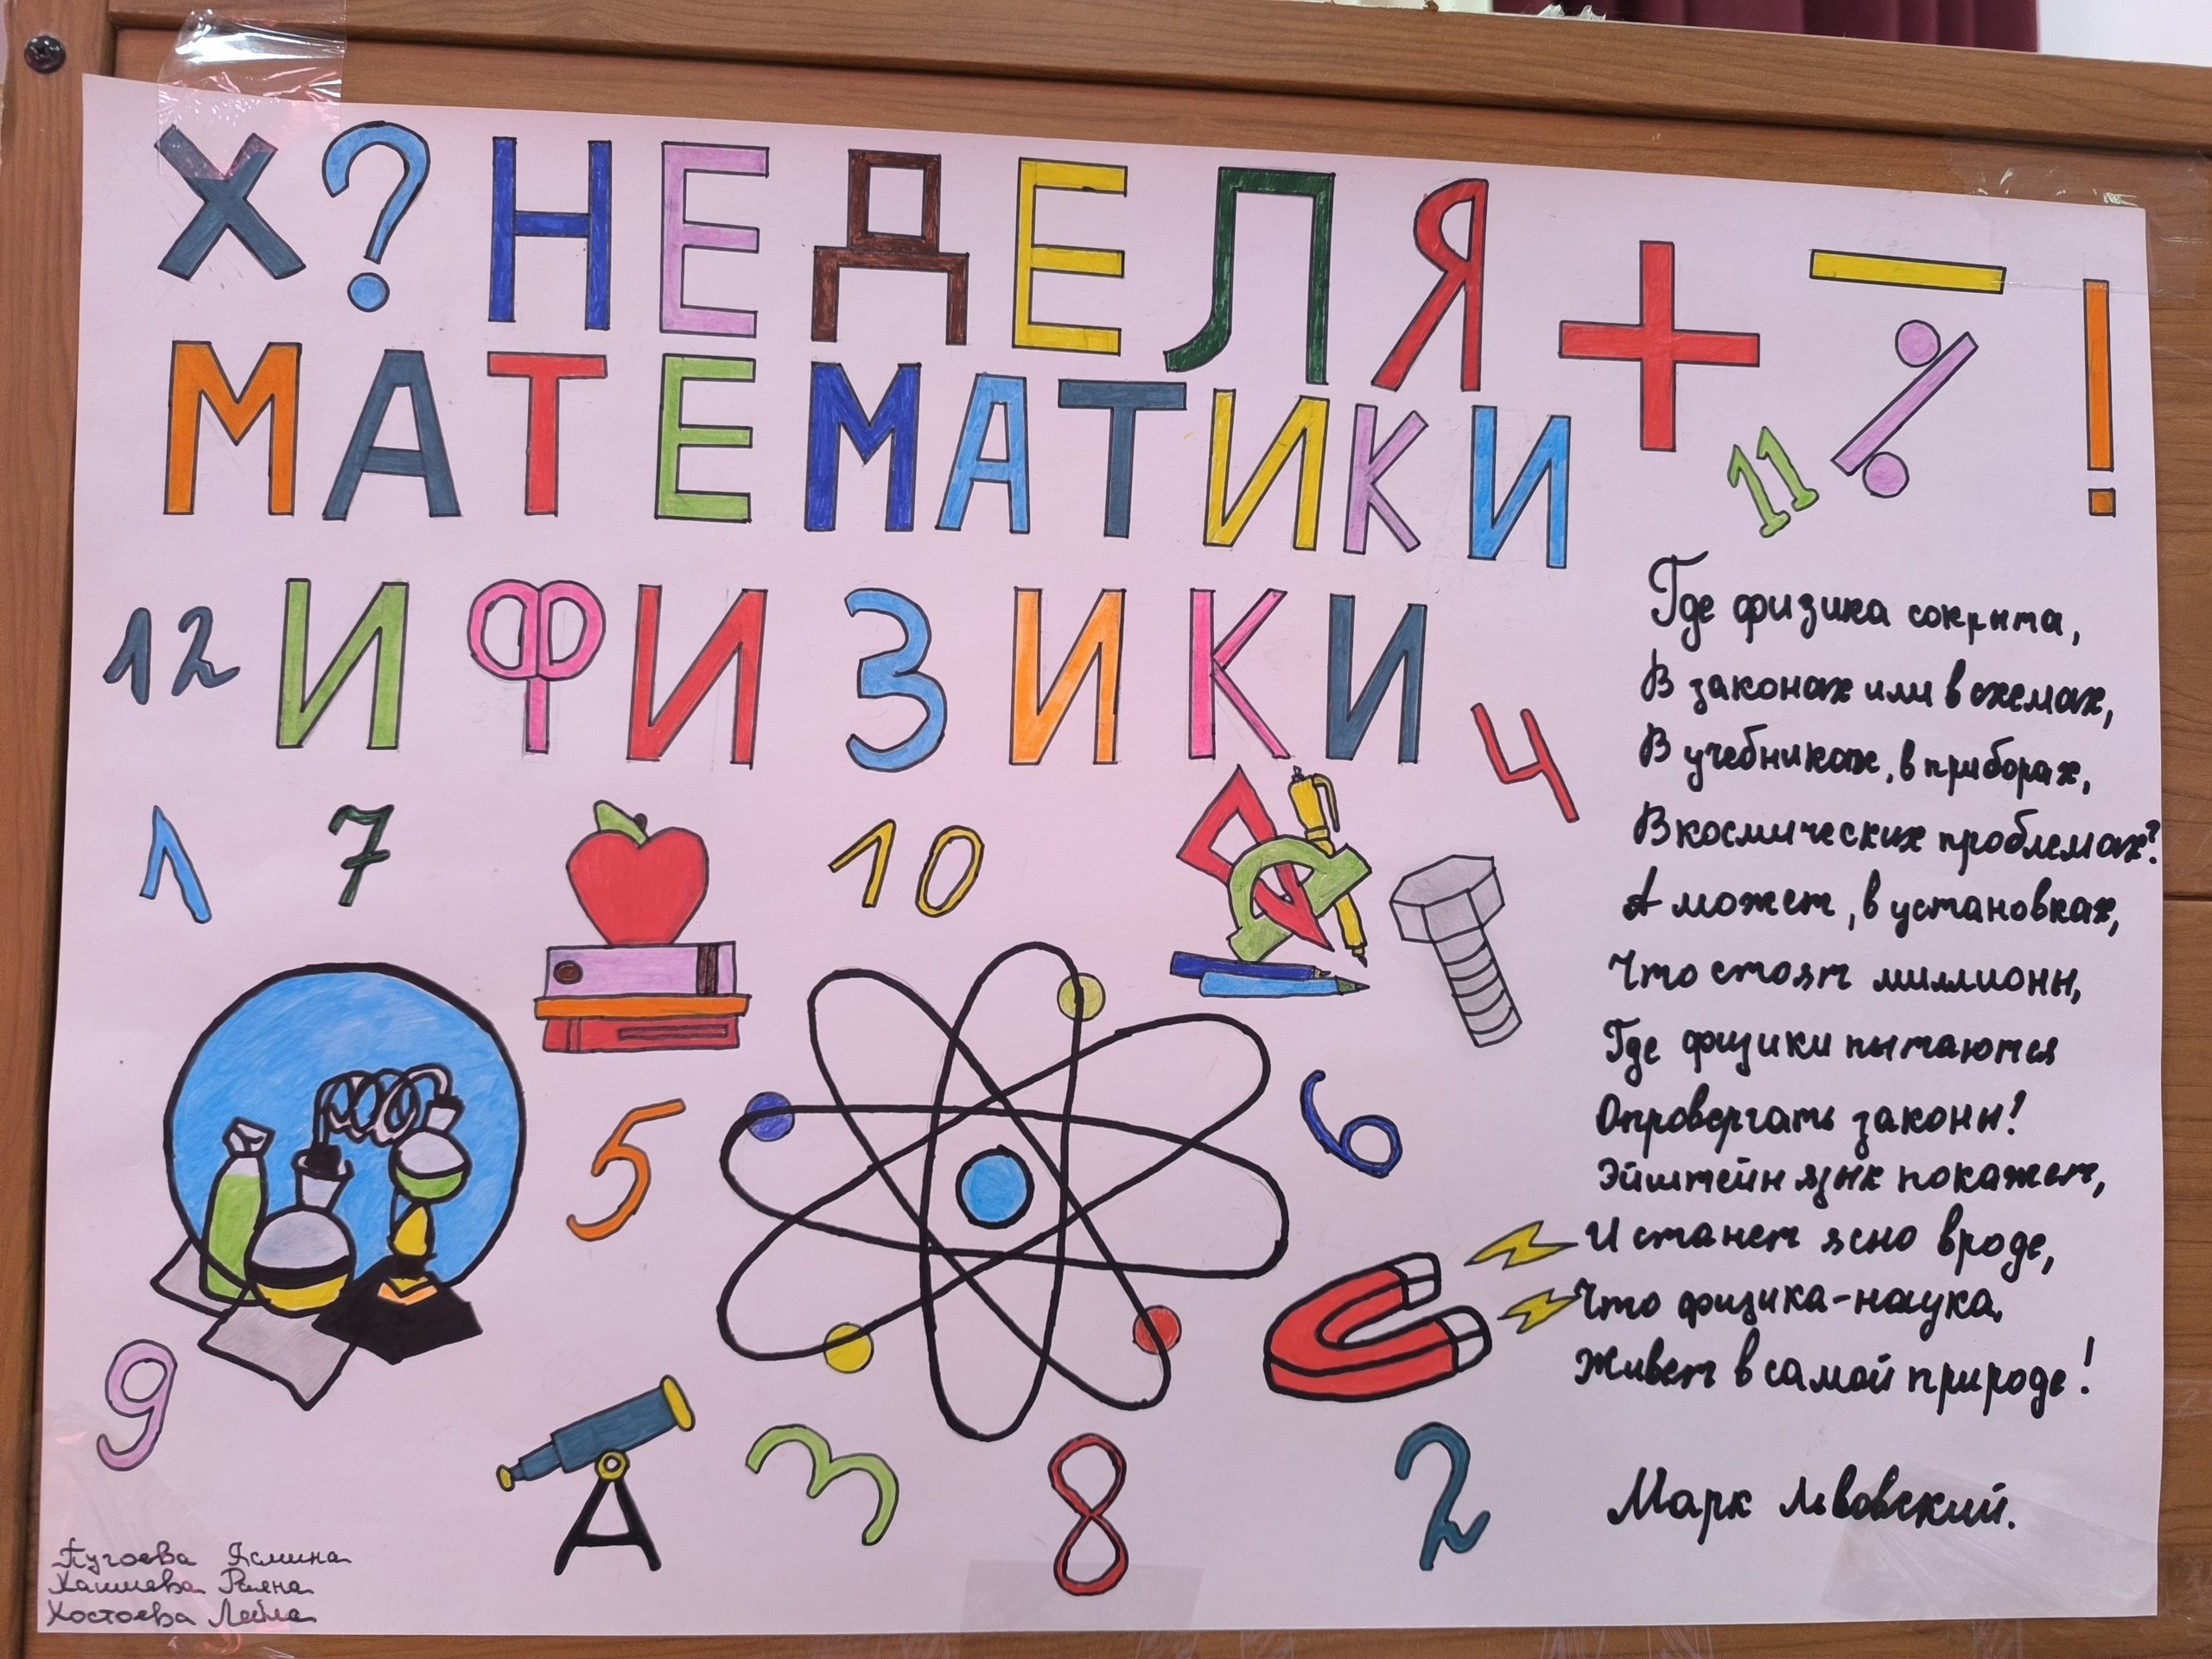 Х? НЕДЕЛЯ + − % !
МАТЕМАТИКИ 11
12 И ФИЗИКИ 4
1 7 10
5 6
9 3 8 2
Где физика сокрыта,
В законах или в схемах,
В учебниках, в приборах,
В космических проблемах?
А может, в установках,
Что стоят миллионы,
Где физики пытаются
Опровергать законы!
Эйштейн язык покажет,
И станет ясно вроде,
Что физика-наука
Живет в самой природе!
Марк Львовский.
Пугоева Ясмина
Хашиева Раяна
Хостоева Лейла